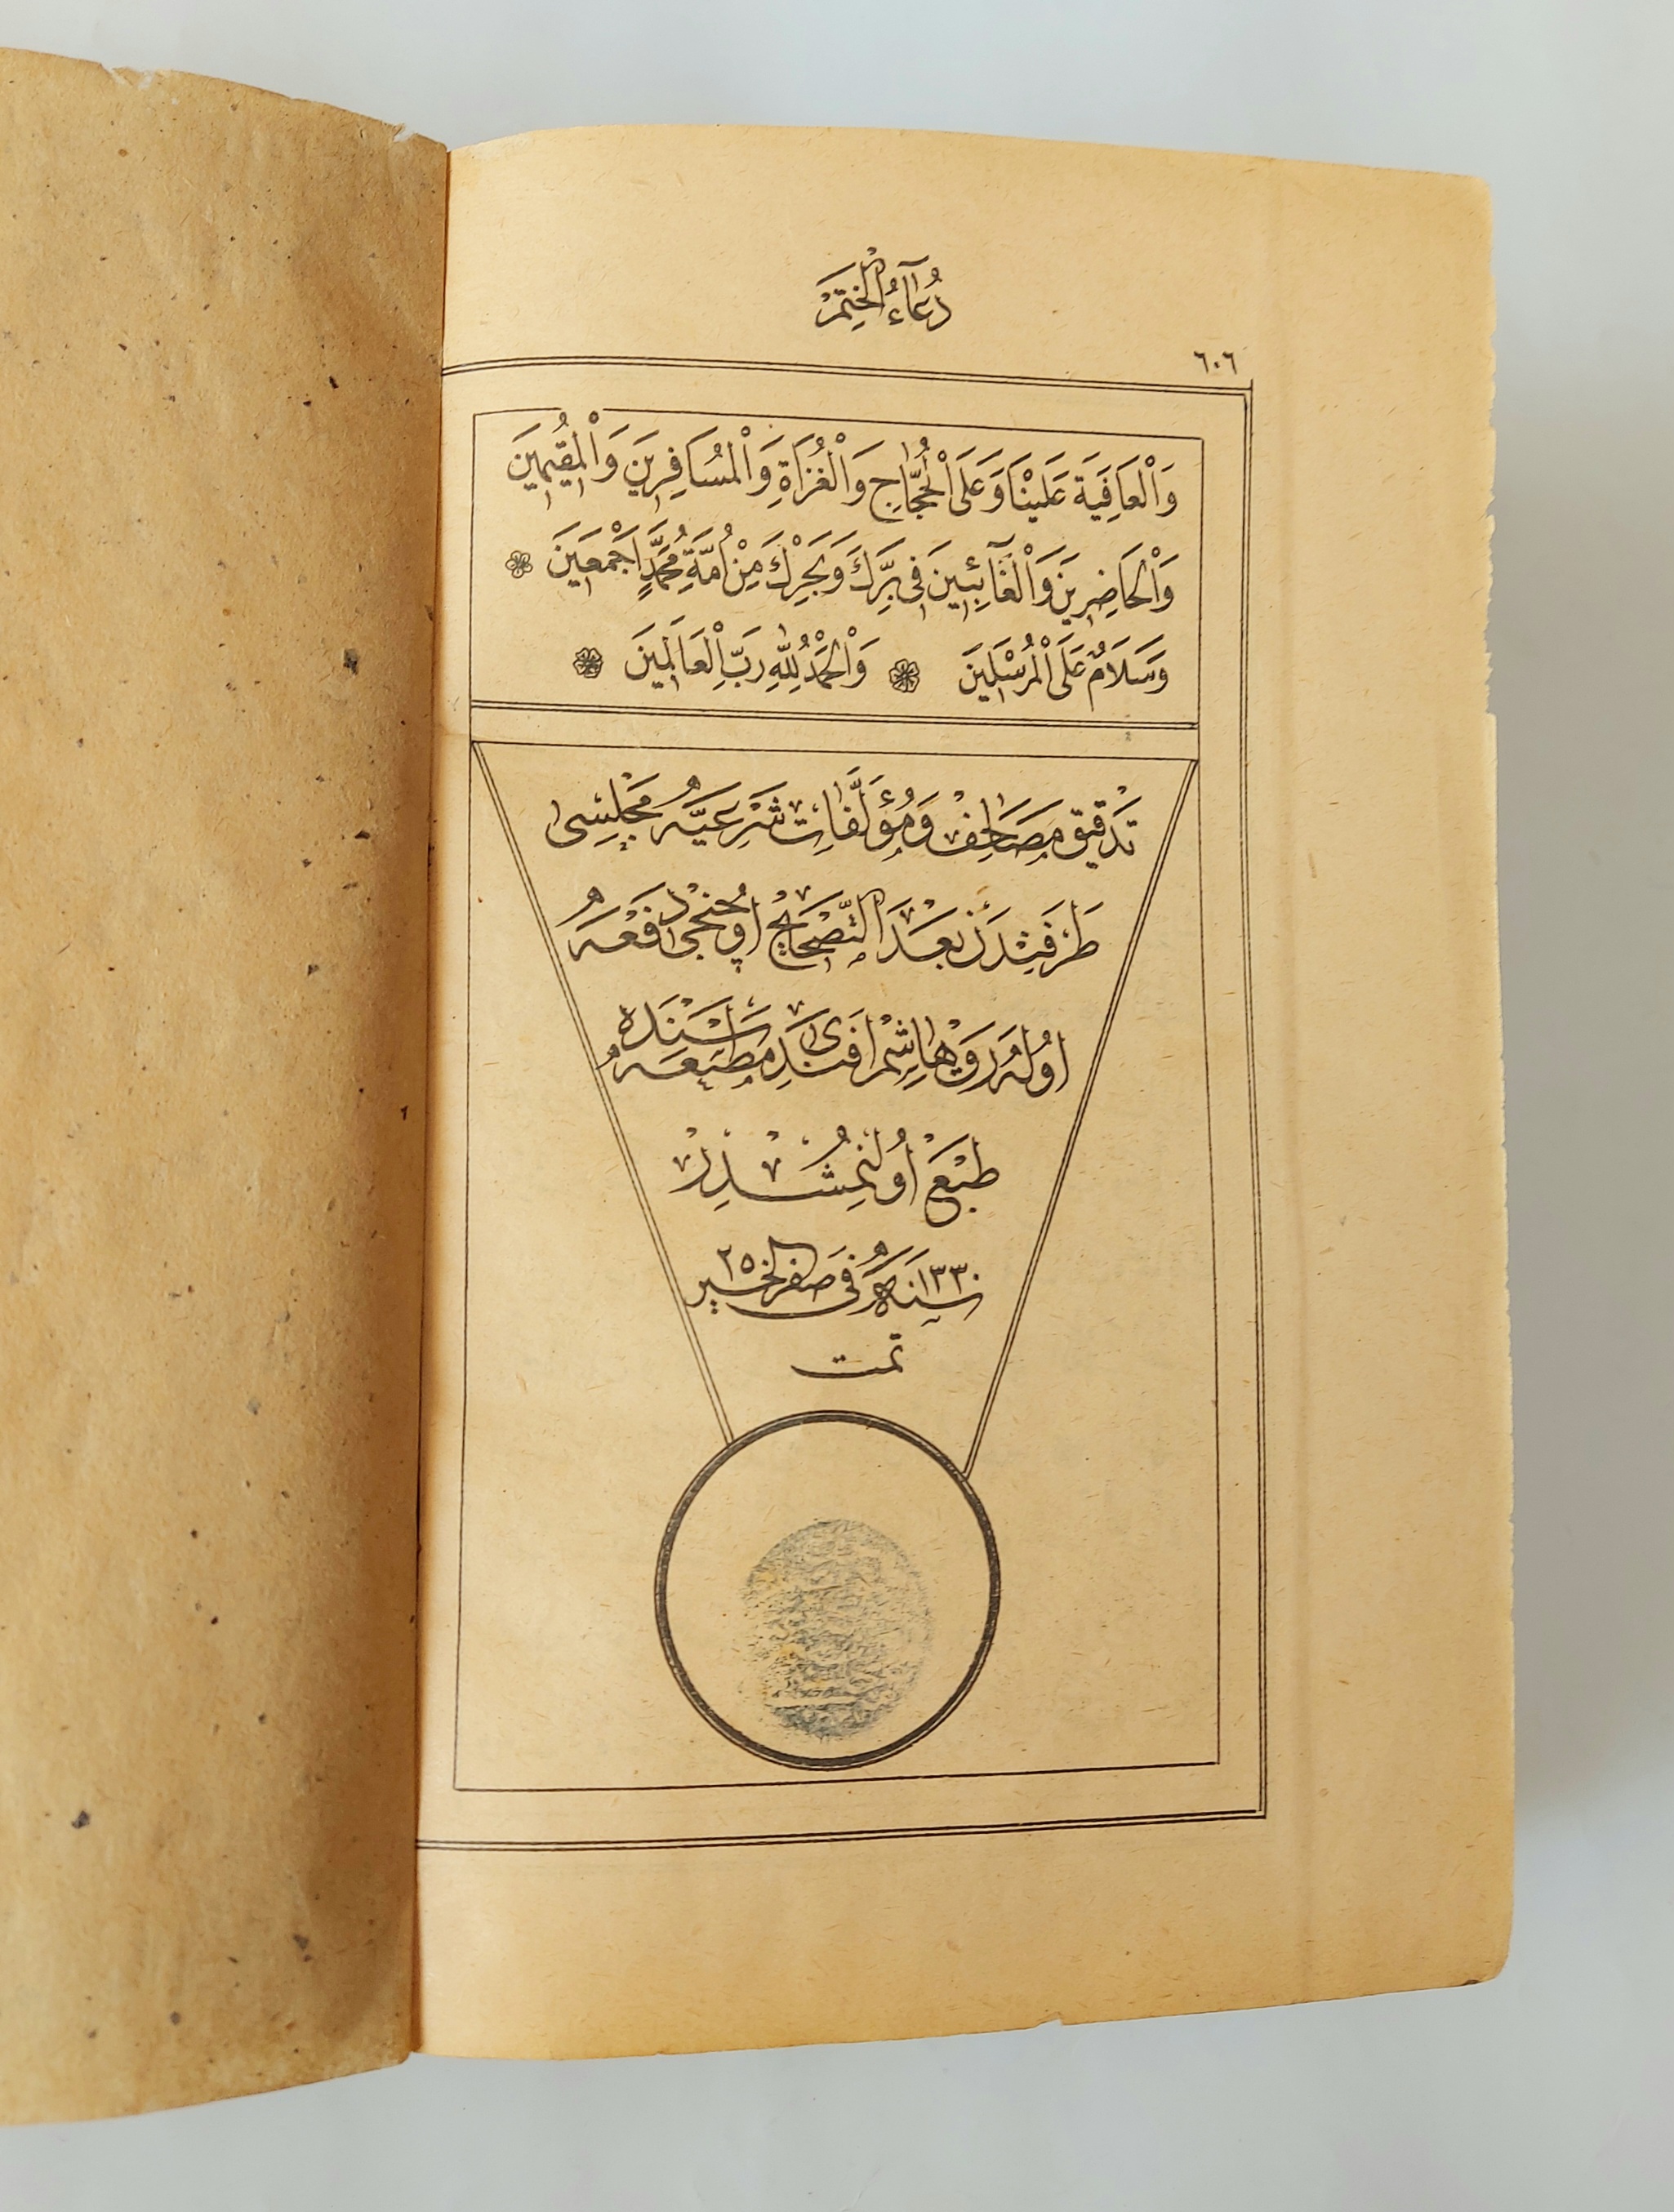 دُعَآءُ الْخَتِمْ
٦٠٦
وَالْعَافِيَةَ عَلَيْنَا وَعَلَى الْحُجَّاجِ وَالْغُزَاةِ وَالْمُسَافِرِينَ وَالْمُقِيمِينَ
وَالْحَاضِرِينَ وَالْغَآئِبِينَ فِى بَرِّكَ وَبَحْرِكَ مِنْ اُمَّةِ مُحَمَّدٍ اَجْمَعِينَ
وَسَلَامٌ عَلَى الْمُرْسَلِينَ وَالْحَمْدُ لِلّٰهِ رَبِّ الْعَالَمِينَ
تَدْقِيقِ مَصَاحِفْ وَمُؤَلَّفَاتِ شَرْعِيَّه مَجْلِسِى
طَرَفِنْدَنْ بَعْدَ التَّصْحِيحْ اوُچُنْجِى دَفْعَه
اوُلَه رَقْ هَاشِمْ اَفَنْدِى مَطْبَعَه سَنْدَه
طَبْعْ اوُلُنْمُشْدِرْ
سنه ١٣٣٠ فى صفر الخير ٢٥
تمت